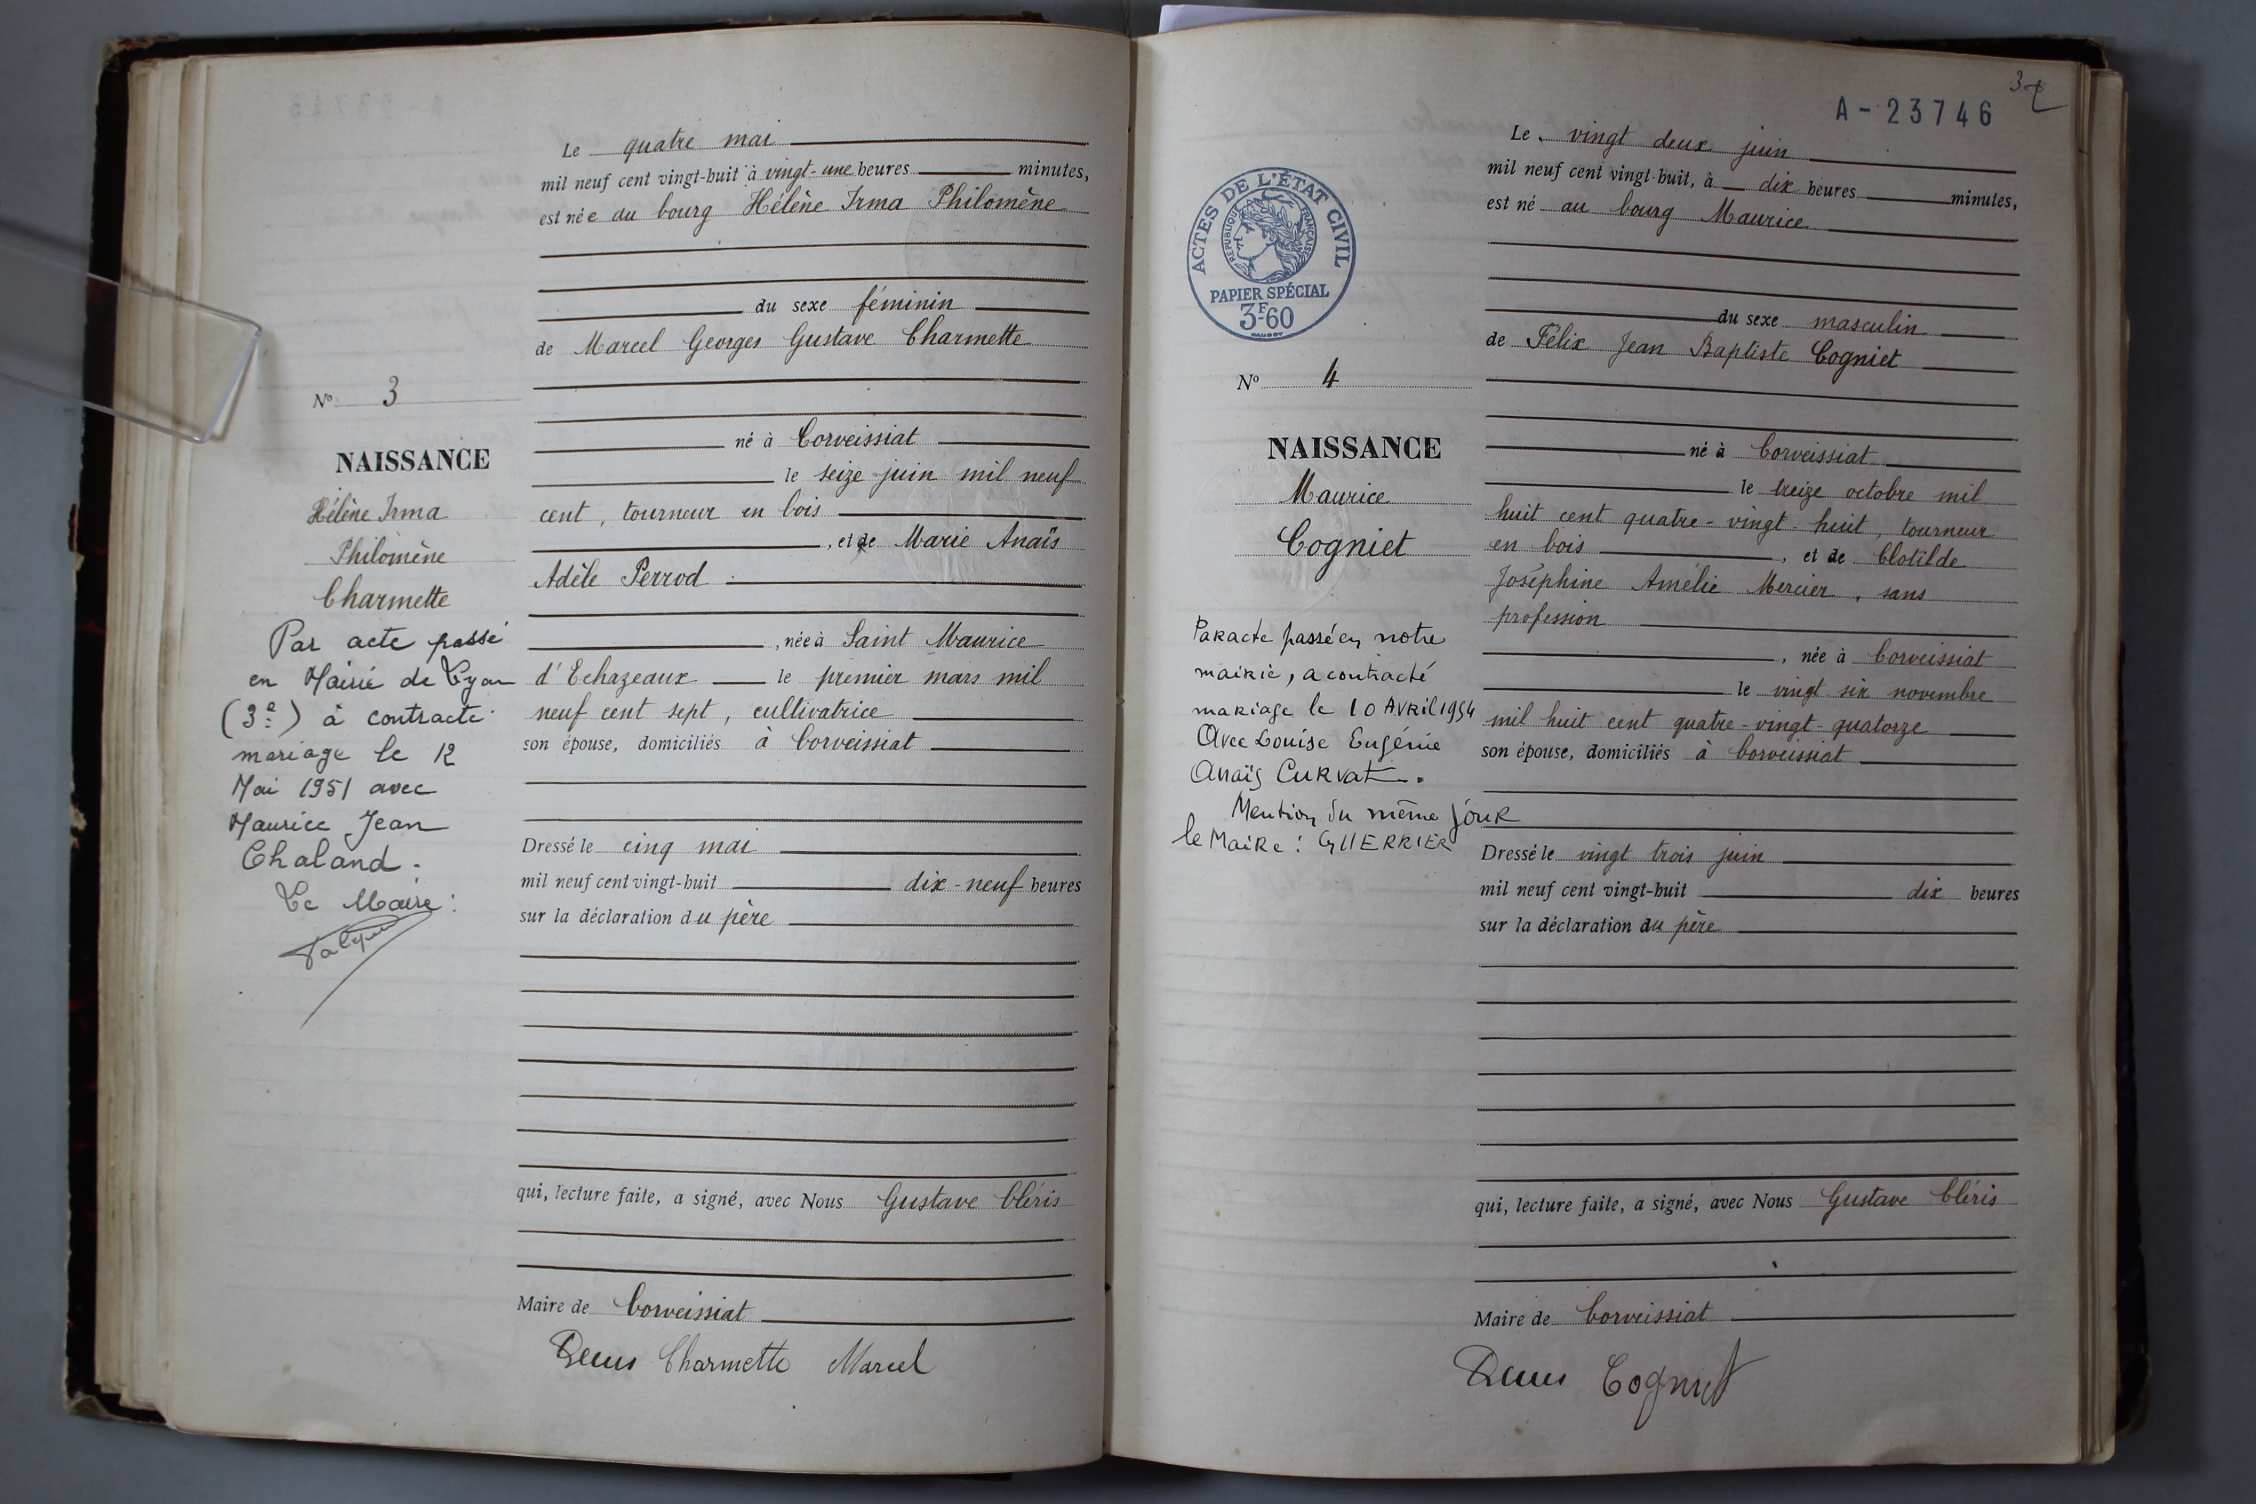 Le quatre mai
mil neuf cent vingt-huit à vingt-une heures minutes,
est née au bourg Hélène Irma Philomène
du sexe féminin
de Marcel Georges Gustave Charmette
né à Corveissiat
le seize juin mil neuf
cent, tourneur en bois
, et de Marie Anaïs
Adèle Perrod
, née à Saint Maurice
d'Echazeaux le premier mars mil
neuf cent sept, cultivatrice
son épouse, domiciliés à Corveissiat
Dressé le cinq mai
mil neuf cent vingt-huit dix-neuf heures
sur la déclaration du père
qui, lecture faite, a signé, avec Nous Gustave Cléris
Maire de Corveissiat
Charmette Marcel
N° 3
NAISSANCE
Hélène Irma
Philomène
Charmette
Par acte passé
en Mairie de Lyon
(3e) à contracté
mariage le 12
Mai 1951 avec
Maurice Jean
Chaland.
Le Maire :
A-23746
37
Le vingt deux juin
mil neuf cent vingt-huit, à dix heures minutes,
est né au bourg Maurice
du sexe masculin
de Félix Jean Baptiste Cogniet
né à Corveissiat
le treize octobre mil
huit cent quatre-vingt-huit, tourneur
en bois , et de Clotilde
Joséphine Amélie Mercier, sans
profession
, née à Corveissiat
le vingt six novembre
mil huit cent quatre-vingt-quatorze
son épouse, domiciliés à Corveissiat
Dressé le vingt trois juin
mil neuf cent vingt-huit dix heures
sur la déclaration du père
qui, lecture faite, a signé, avec Nous Gustave Cléris
Maire de Corveissiat
Cogniet
ACTES DE L'ÉTAT CIVIL
RÉPUBLIQUE FRANÇAISE
PAPIER SPÉCIAL
3F60
N° 4
NAISSANCE
Maurice
Cogniet
Par acte passé en notre
mairie, a contracté
mariage le 10 Avril 1954
Avec Louise Eugénie
Anaïs CURVAT.
Mention du même jour
le Maire : GUERRIER